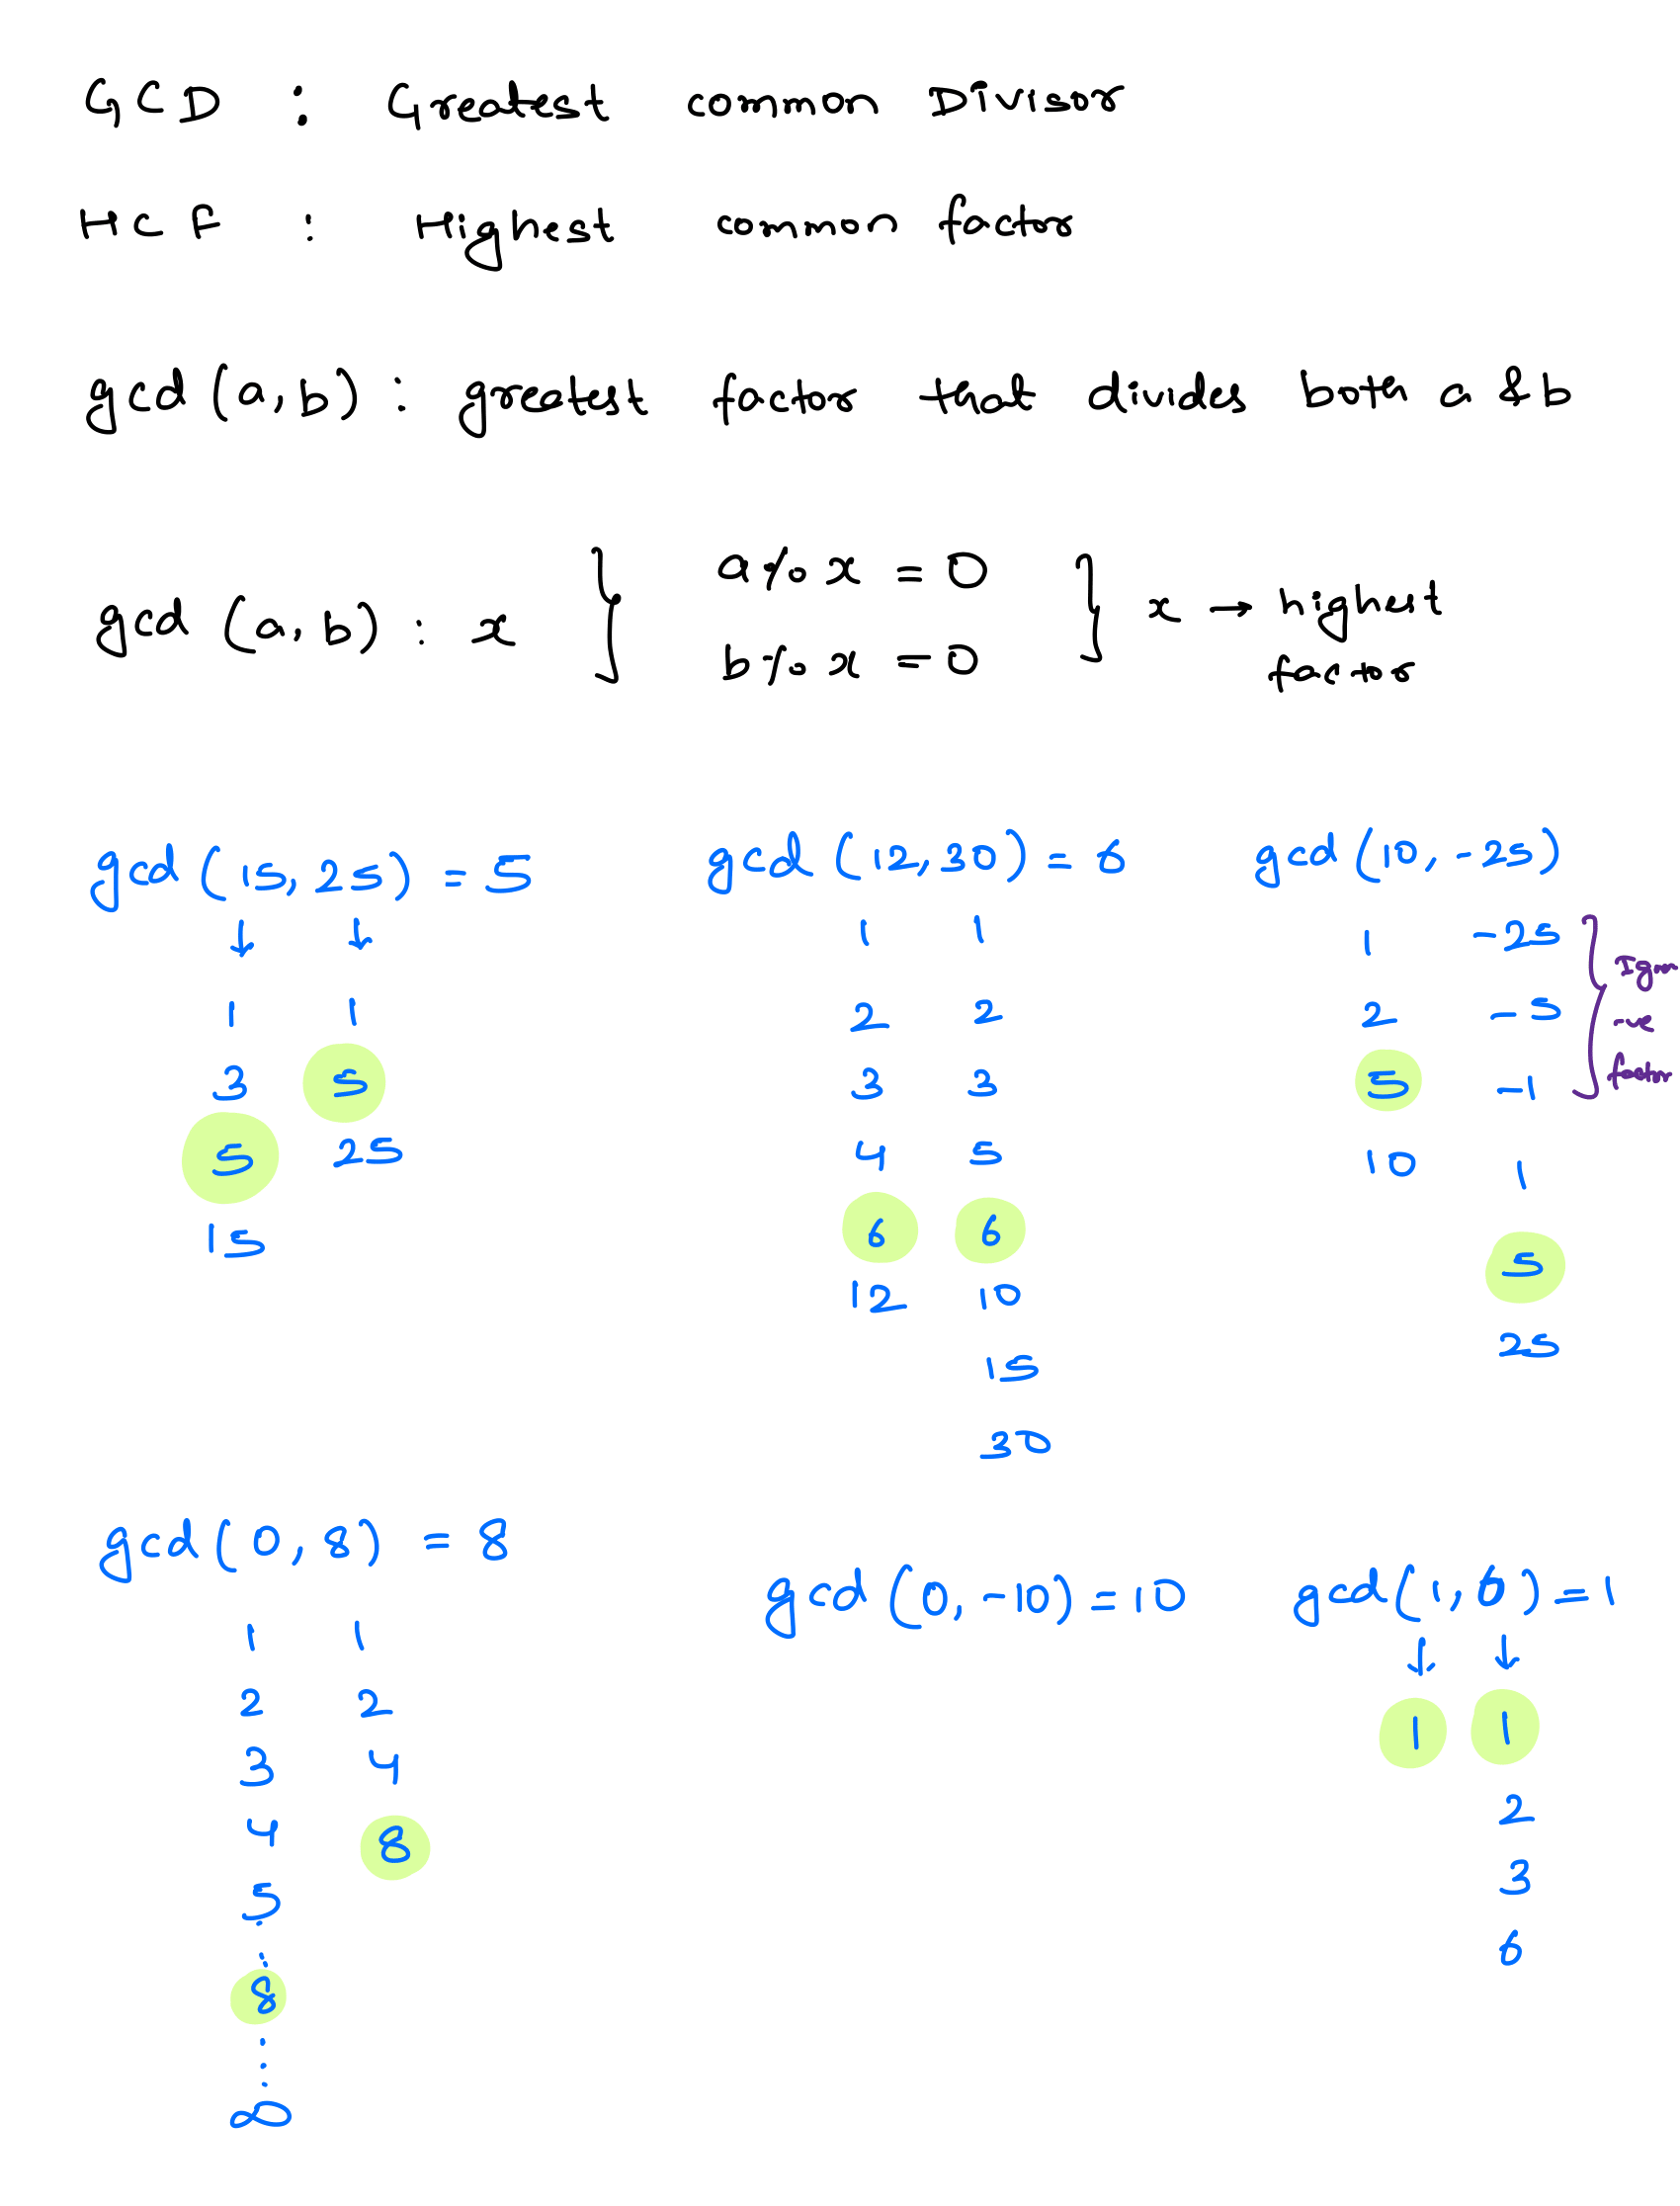 GCD : Greatest common Divisor
HCF : Highest common factor
gcd (a, b) : greatest factor that divides both a & b
gcd (a, b) : x } a % x = 0 } x → highest
b % x = 0 factor
gcd (15, 25) = 5
↓ ↓
1 1
3 5
5 25
15
gcd (12, 30) = 6
1 1
2 2
3 3
4 5
6 6
12 10
15
30
gcd (10, -25)
1 -25
2 -5
5 -1
10 1
5
25
-ve
gcd (0, 8) = 8
1 1
2 2
3 4
4 8
5
8
∞
gcd (0, -10) = 10
gcd (1, 6) = 1
↓ ↓
1 1
2
3
6